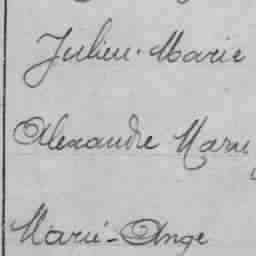 Julien-Marie
Alexandre Marie
Marie-Ange